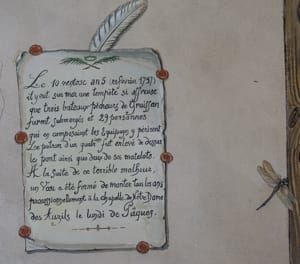 Le 10 ventose an 5 (28 février 1797)
il y eut sur mer une tempête si affreuse
que trois bateaux pêcheurs de Gruissan
furent submergés et 29 personnes
qui en composaient les équipages y périrent
Le patron d'un quatre fut enlevé de dessus
le pont ainsi que deux de ses matelots.
A la suite de ce terrible malheur,
un Vœu a été formé de monter tous les ans
processionnellement à la chapelle de Nôtre Dame
des Auzils le lundi de Pâques.